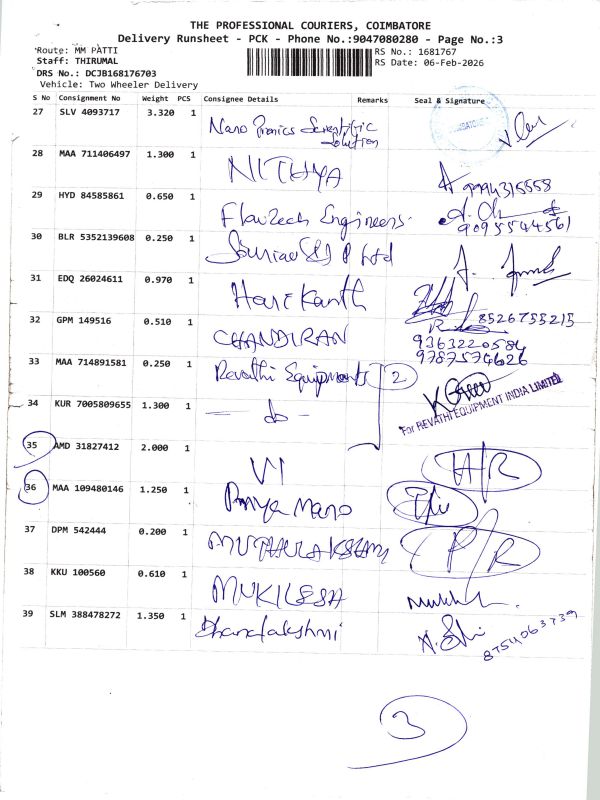 THE PROFESSIONAL COURIERS, COIMBATORE
Delivery Runsheet - PCK - Phone No.:9047080280 - Page No.:3
Route: MM PATTI
RS No.: 1681767
Staff: THIRUMAL
RS Date: 06-Feb-2026
DRS No.: DCJB168176703
Vehicle: Two Wheeler Delivery
S No Consignment No Weight PCS Consignee Details Remarks Seal & Signature
27 SLV 4093717 3.320 1 Nano Scientific Solution
28 MAA 711406497 1.300 1 NITHYA 9994315558
29 HYD 84585861 0.650 1 Engineers. 9095544561
30 BLR 5352139608 0.250 1 P Ltd
31 EDQ 26024611 0.970 1 Harikanth 8526755215
32 GPM 149516 0.510 1 CHANDIRAN 9363220584
9787574626
33 MAA 714891581 0.250 1 Revathi Equipments 2
For REVATHI EQUIPMENT INDIA LIMITED
34 KUR 7005809655 1.300 1 - do -
35 AMD 31827412 2.000 1 VI H/R
36 MAA 109480146 1.250 1 Priya Mano
37 DPM 542444 0.200 1 MUTHULAKSHMI P/R
38 KKU 100560 0.610 1 MUKILESH
39 SLM 388478272 1.350 1 Dhanalakshmi 8754063739
3